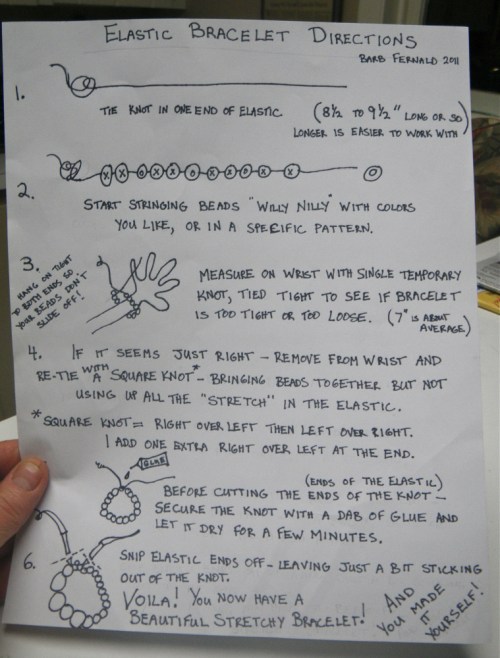 ELASTIC BRACELET DIRECTIONS
BARB FERNALD 2011
1.
TIE KNOT IN ONE END OF ELASTIC. (8½ TO 9½" LONG OR SO
LONGER IS EASIER TO WORK WITH)
2.
START STRINGING BEADS "WILLY NILLY" WITH COLORS
YOU LIKE, OR IN A SPECIFIC PATTERN.
3.
HANG ON TIGHT
TO BOTH ENDS SO
YOUR BEADS DON'T
SLIDE OFF!
MEASURE ON WRIST WITH SINGLE TEMPORARY
KNOT, TIED TIGHT TO SEE IF BRACELET
IS TOO TIGHT OR TOO LOOSE. (7" IS ABOUT
AVERAGE)
4. IF IT SEEMS JUST RIGHT - REMOVE FROM WRIST AND
RE-TIE WITH A SQUARE KNOT* - BRINGING BEADS TOGETHER BUT NOT
USING UP ALL THE "STRETCH" IN THE ELASTIC.
*SQUARE KNOT = RIGHT OVER LEFT THEN LEFT OVER RIGHT.
I ADD ONE EXTRA RIGHT OVER LEFT AT THE END.
GLUE
(ENDS OF THE ELASTIC)
BEFORE CUTTING THE ENDS OF THE KNOT -
SECURE THE KNOT WITH A DAB OF GLUE AND
LET IT DRY FOR A FEW MINUTES.
6.
SNIP ELASTIC ENDS OFF - LEAVING JUST A BIT STICKING
OUT OF THE KNOT.
VOILA! YOU NOW HAVE A
BEAUTIFUL STRETCHY BRACELET!
AND
YOU MADE
IT
YOURSELF!